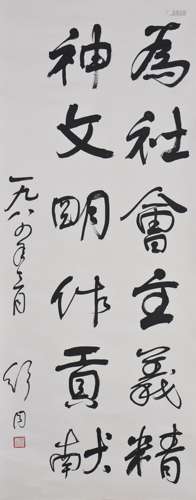 為社會主義精
神文明作貢献
一九八四年三月
舒同